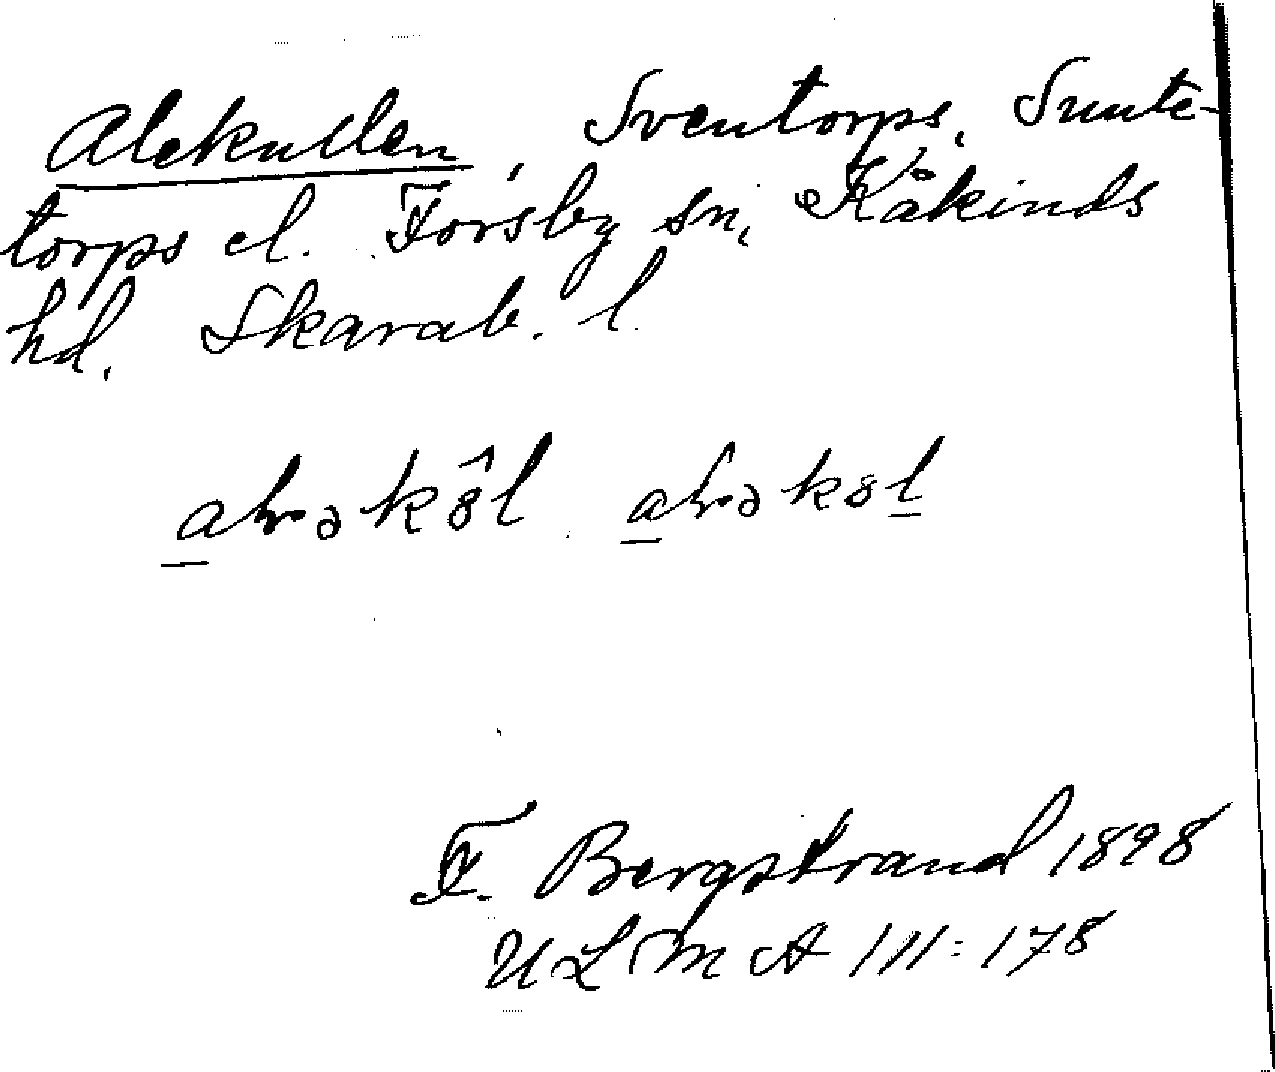 Alekullen, Sventorps, Sunte-
torps el. Forsby sn, Kåkinds
hd. Skarab. l.
F. Bergstrand 1898
ULMA 111:178